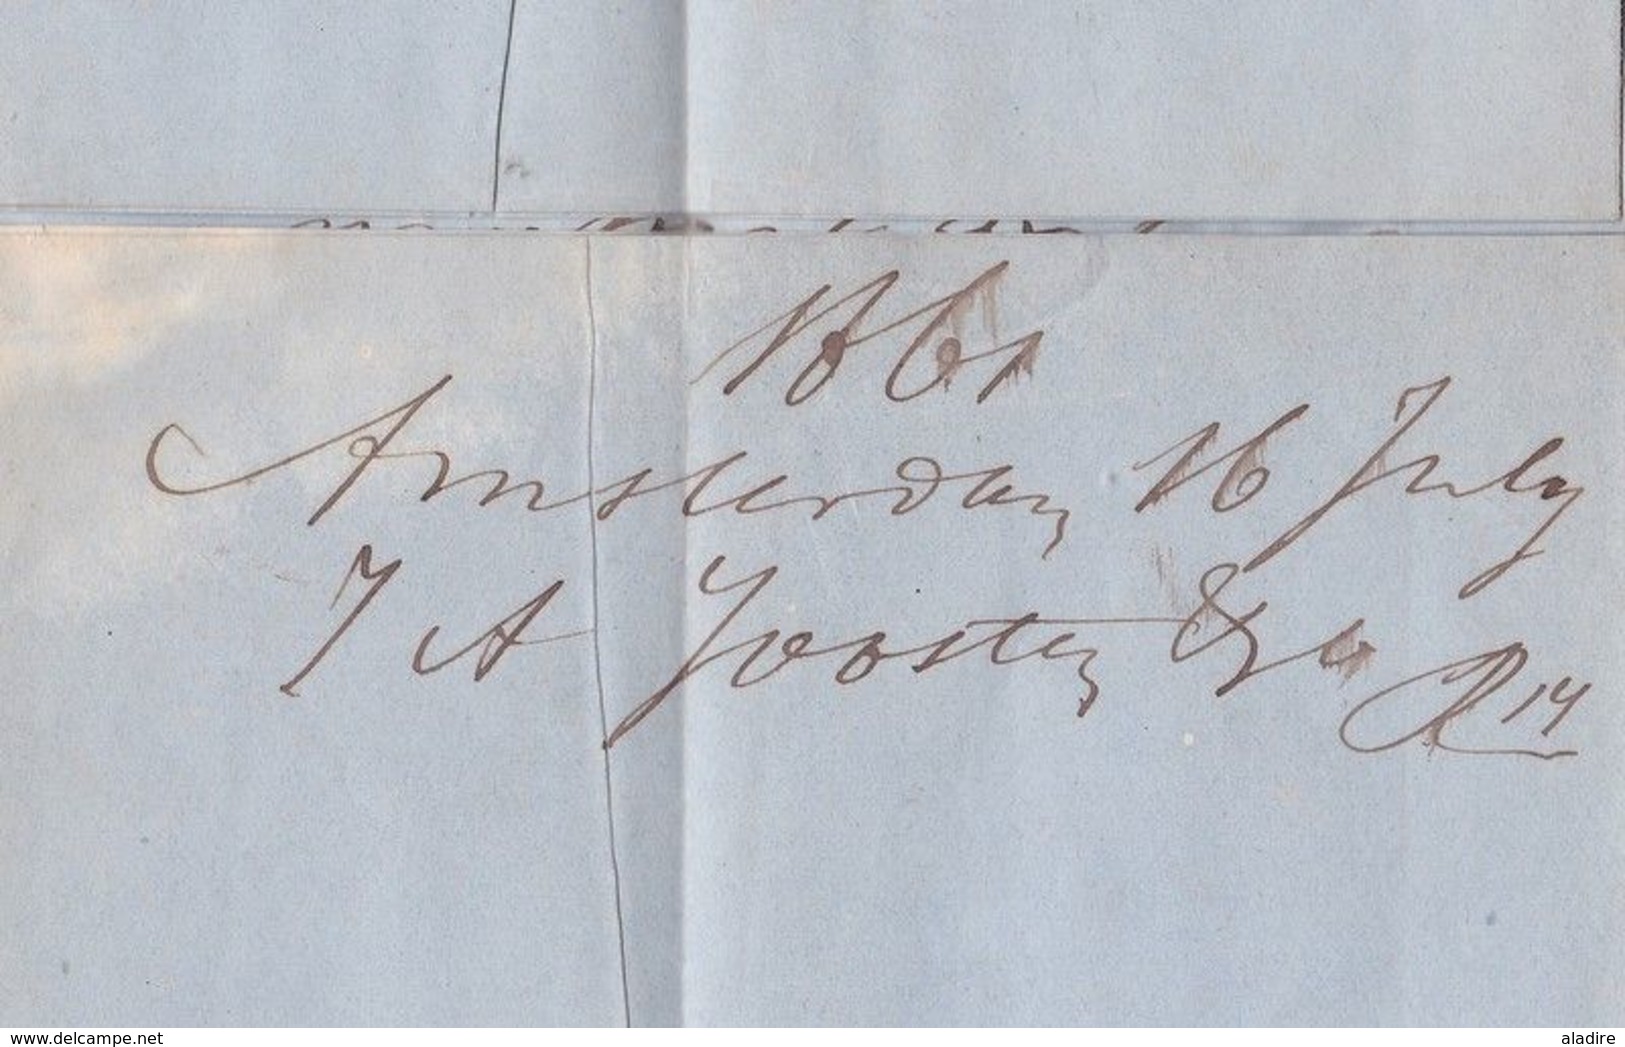 1861
Amsterdam 16 July
J A Joosten & Co
R 14
www.delcampe.net
aladire